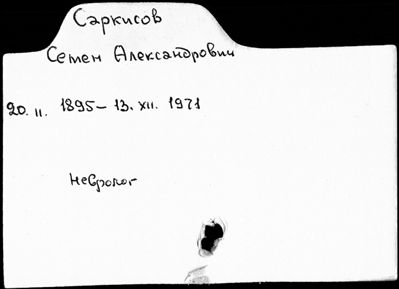 Саркисов
Семен Александрович
20. II. 1895 – 13. XII. 1971
Невролог